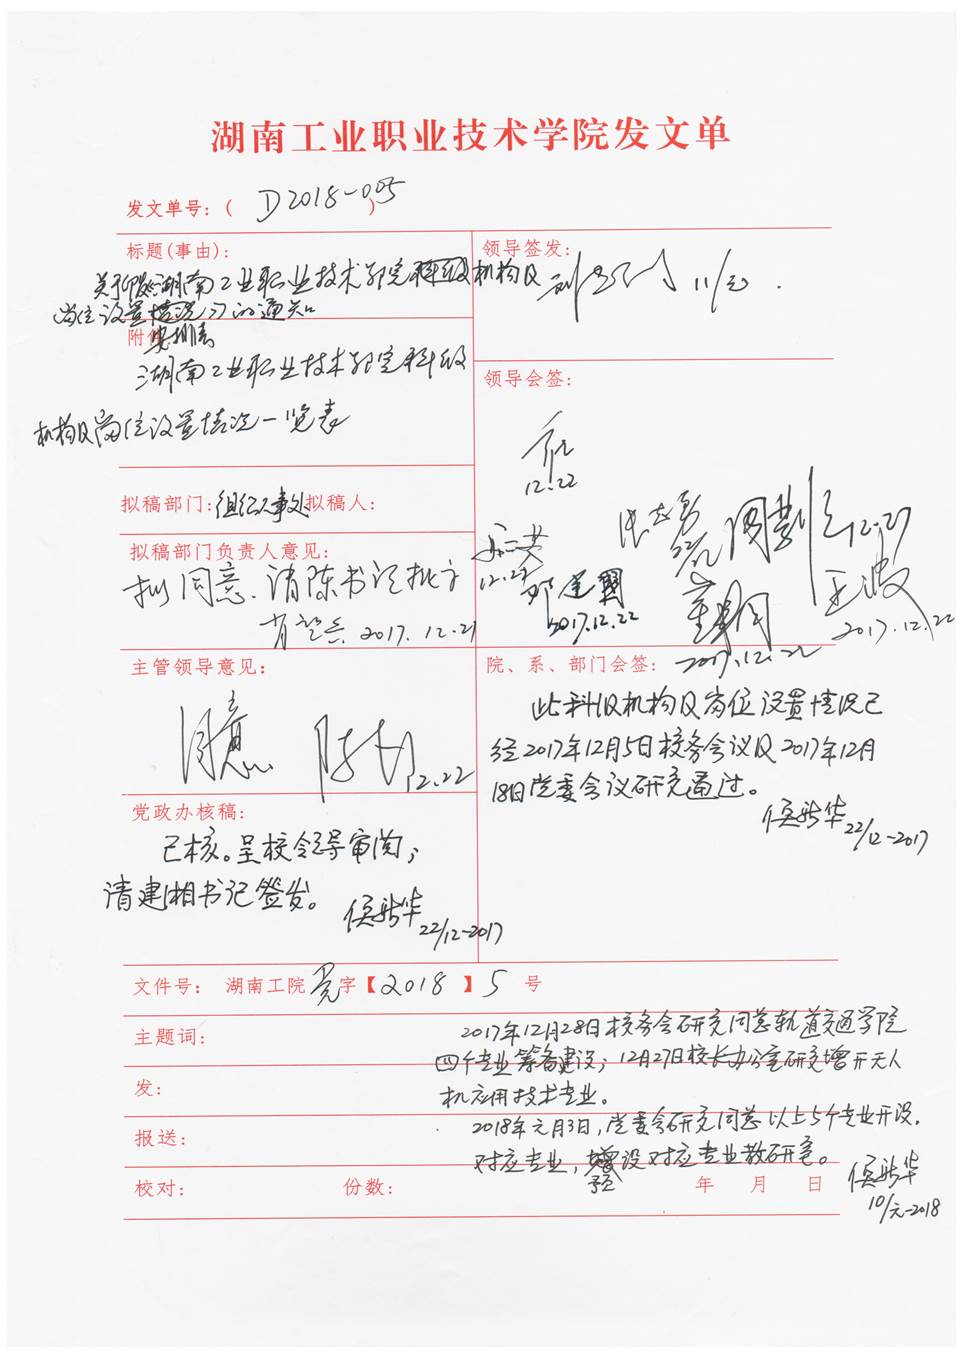 湖南工业职业技术学院发文单
发文单号：( D2018-005 )
标题(事由)：
湖南工业职业技术学院科级机构及
岗位设置情况的通知
附件
湖南工业职业技术学院科级
机构及岗位设置情况一览表
拟稿部门：组织人事处 拟稿人：
拟稿部门负责人意见：
拟同意，请陈书记批示
2017.12.21
主管领导意见：
同意
12.22
党政办核稿：
已核。呈校领导审阅；
请建湘书记签发。
侯新华
22/12-2017
领导签发：
11/元.
领导会签：
12.22
12.21
12.22
邓建国
2017.12.22
2017.12.22
王波
2017.12.22
院、系、部门会签：
此科级机构及岗位设置情况已
经2017年12月5日校务会议及2017年12月
18日党委会议研究通过。
侯新华
22/12-2017
文件号： 湖南工院党字【2018】5 号
主题词：
发：
报送：
校对： 份数： 年 月 日
2017年12月28日校务会研究同意轨道交通学院
四个专业筹备建设；12月27日校长办公室研究增开无人
机应用技术专业。
2018年元月3日，党委会研究同意以上5个专业开设。
对应专业，设对应专业教研室。
侯新华
10/元-2018